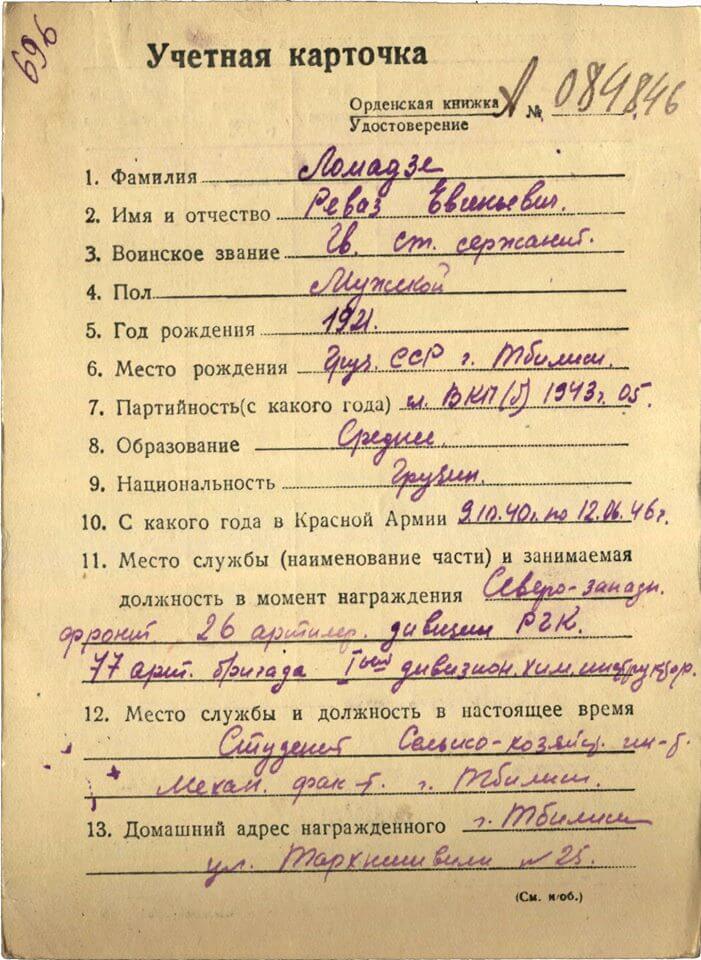 696
Учетная карточка
Орденская книжка А № 084846
Удостоверение
1. Фамилия Ломадзе
2. Имя и отчество Реваз Евгеньевич.
3. Воинское звание Гв. ст. сержант.
4. Пол Мужской
5. Год рождения 1921.
6. Место рождения Груз. ССР г. Тбилиси.
7. Партийность(с какого года) чл. ВКП(б) 1943г. 05.
8. Образование Среднее.
9. Национальность Грузин.
10. С какого года в Красной Армии по 12.06.46г.
11. Место службы (наименование части) и занимаемая
должность в момент награждения Северо-западн.
фронт. 26 артилер. дивизии РГК.
77 арт. бригада Iый дивизион. хим. инструктор.
12. Место службы и должность в настоящее время
Студент Сельско-хозяйс. ин-т.
Механ. фак-т. г. Тбилиси.
13. Домашний адрес награжденного г. Тбилиси
ул. Тархнишвили №25.
(См. н/об.)